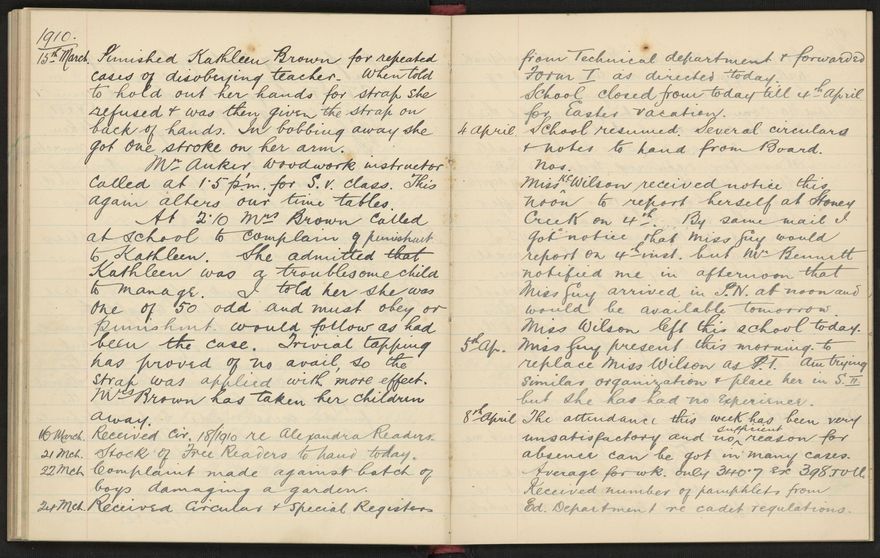 1910.
15th March. Punished Kathleen Brown for repeated
cases of disobeying teacher. When told
to hold out her hands for strap she
refused & was then given the strap on
back of hands. In bobbing away she
got one stroke on her arm.
Mr Anker, woodwork instructor
called at 1.5 p.m. for S.V. class. This
again alters our time tables.
At 2.10 Mrs Brown called
at school to complain of punishmt
to Kathleen. She admitted that
Kathleen was a troublesome child
to manage. I told her she was
one of 50 odd and must obey or
punishmt. would follow as had
been the case. Trivial tapping
has proved of no avail, so the
strap was applied with more effect.
Mrs Brown has taken her children
away.
16 March. Received Cir. 18/1910 re Alexandra Readers.
21 Mch. Stock of Free Readers to hand today.
22 Mch Complaint made against batch of
boys damaging a garden.
24 Mch. Received Circular & Special Registers
from Technical department & forwarded
Form I as directed today.
School closed from today till 4th April
for Easter vacation.
4 April School resumed. Several circulars
& notes to hand from Board.
Nos.
Miss Wilson received notice this
noon to report herself at Stoney
Creek on 4th. By same mail I
got notice that Miss Guy would
report on 4th inst. but Mr Bennett
notified me in afternoon that
Miss Guy arrived in P.N. at noon and
would be available tomorrow.
Miss Wilson left this school today.
5th Ap. Miss Guy present this morning to
replace Miss Wilson as P.T. Am trying
similar organization & place her in S. II
but she has had no experience.
8th April The attendance this week has been very
unsatisfactory and no sufficient reason for
absence can be got in many cases.
Average for wk. only 340.7 ex 398 roll.
Received number of pamphlets from
Ed. Department re cadet regulations.